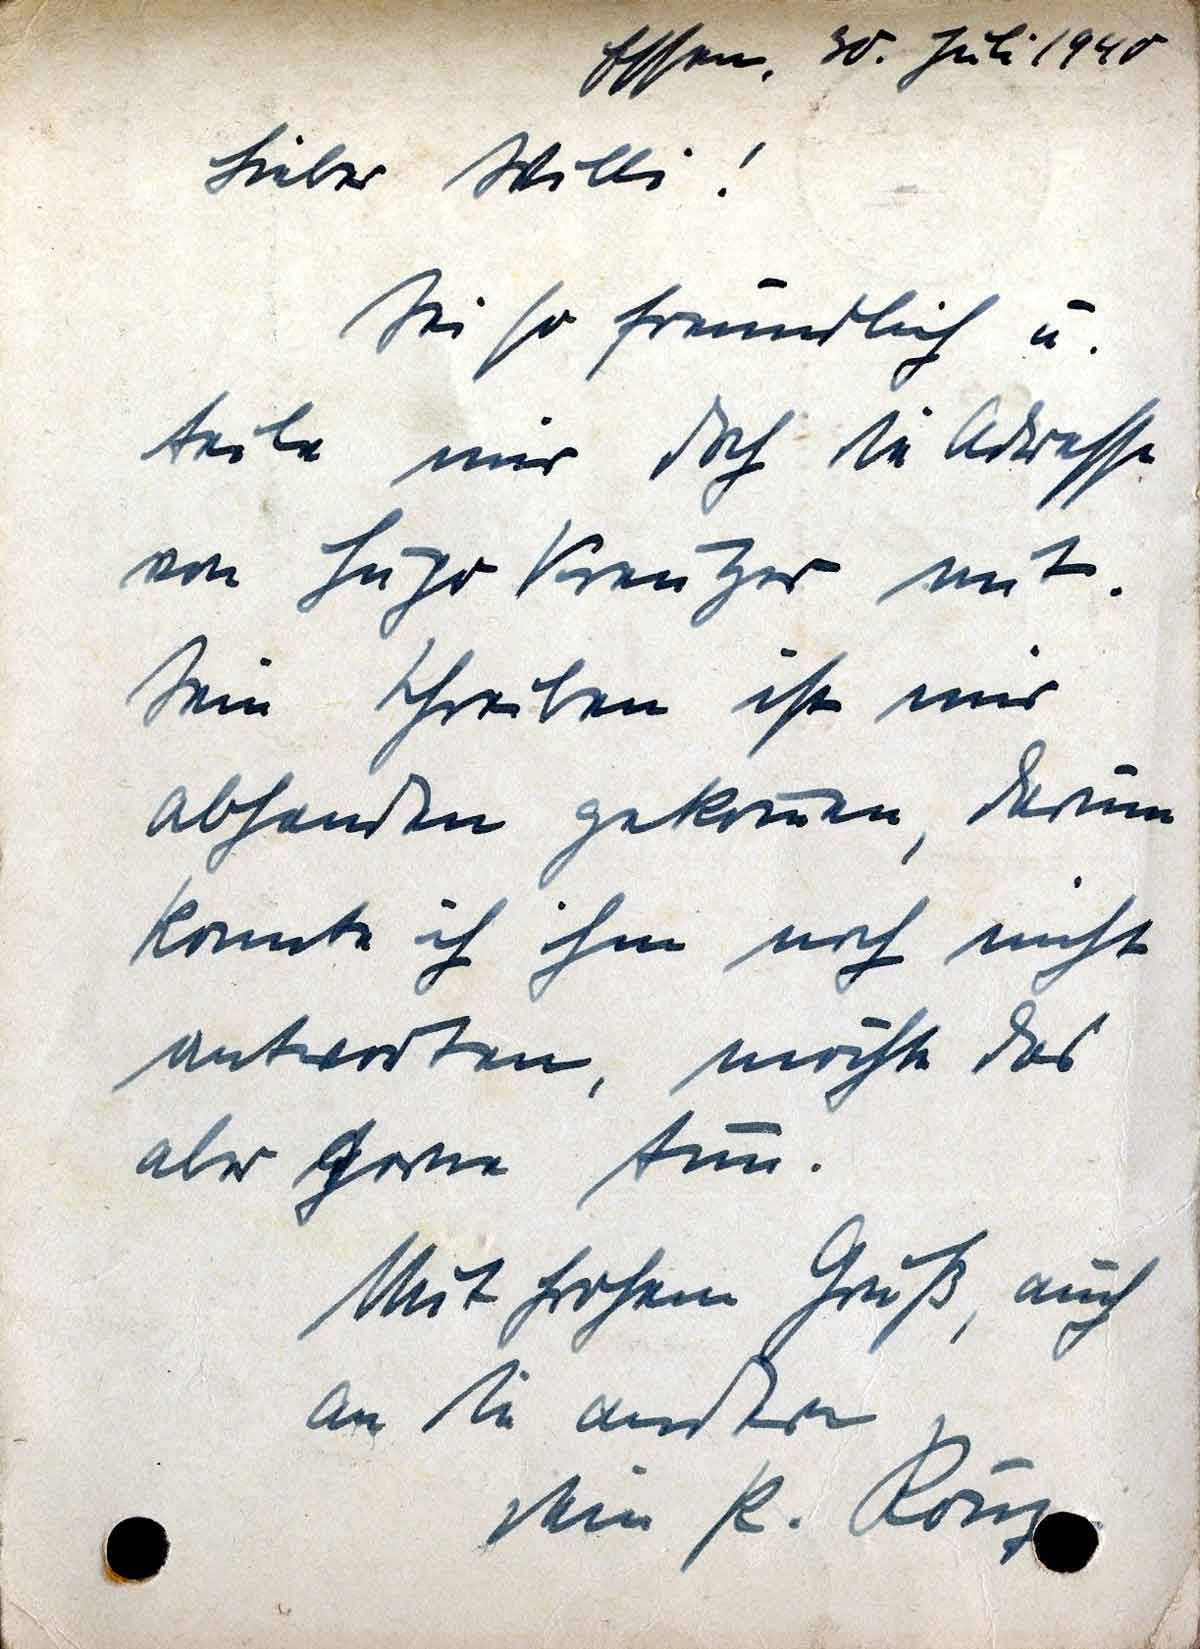 Essen, 30. Juli 1940
Lieber Willi!
Sei so freundlich u.
teile mir doch die Adresse
von Hugo Kreutzer mit.
Sein Schreiben ist mir
abhanden gekom̅en, darum
konnte ich ihm noch nicht
antworten, möchte das
aber gerne tun.
Mit frohem Gruß, auch
an die andern
Dein K.